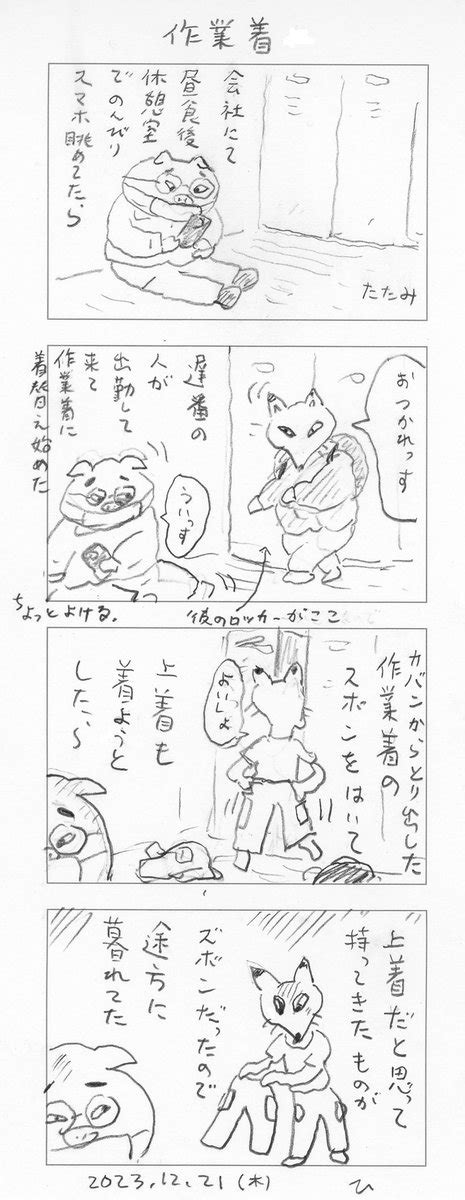 作業着
会社にて
昼食後
休憩室
でのんびり
スマホ眺めてたら
たたみ
おつかれっす
遅番の
人が
出勤して
来て
作業着に
着替え始めた
ういっす
ちょっとよける。
彼のロッカーがここ
カバンからとり出した
作業着の
ズボンをはいて
よいしょ
上着も
着ようと
したら
上着だと思って
持ってきたものが
ズボンだったので
途方に
暮れてた
2023.12.21(木)
ひ